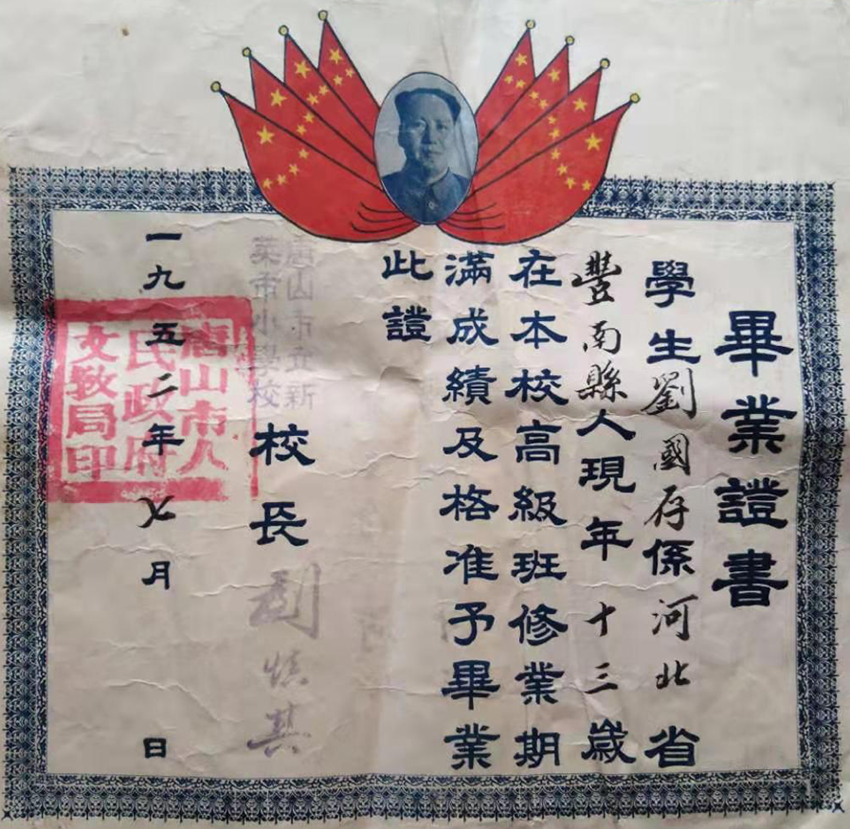 畢業證書
學生劉國存係河北省
豐南縣人現年十三歲
在本校高級班修業期
滿成績及格准予畢業
此證
唐山市立新
菜市小學校
校長劉慎其
一九五二年七月 日
唐山市人
民政府
文教局印